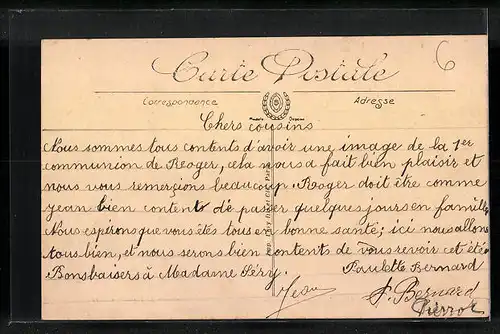 6
Carte Postale
Correspondance
Adresse
Chers cousins
Nous sommes tous contents d'avoir une image de la 1er
communion de Roger, cela nous a fait bien plaisir et
nous vous remerçions beaucoup. Roger doit être comme
Jean bien content de passer quelques jours en famille.
Nous espérons que vous êtes tous en bonne santé; ici nous allons
tous bien, et nous serons bien contents de vous revoir cet été.
Bons baisers à Madame Séry.
Paulette Bernard
Jean
P. Bernard
Pierrot